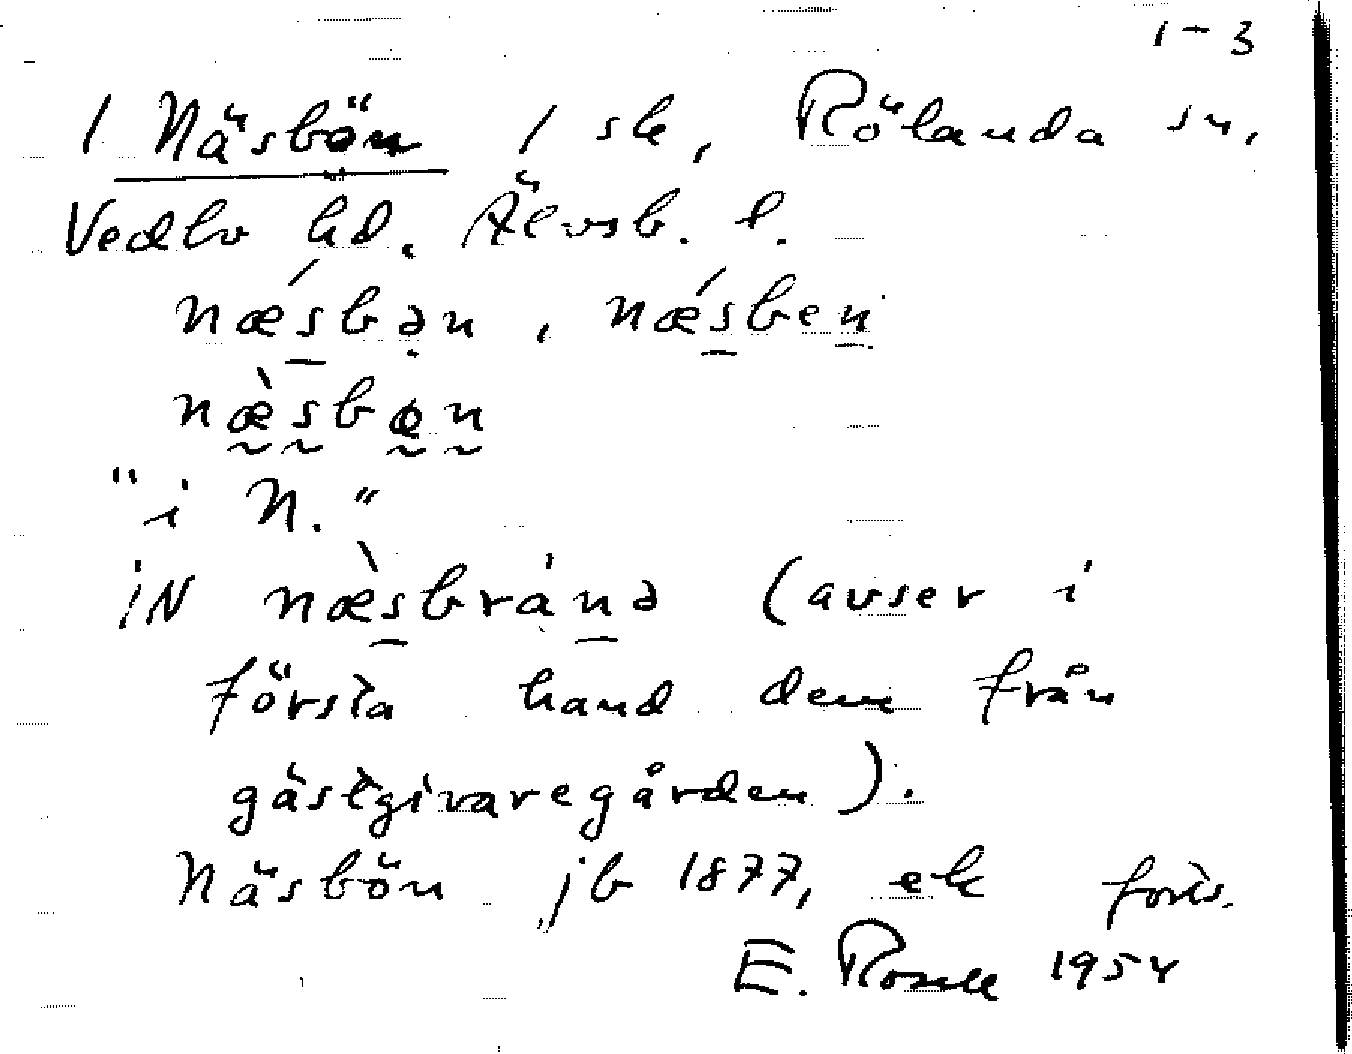 1-3
1 Näsbön 1 sk, Rölanda sn,
Vedbo hd. Älvsb. l.
næ´sbən, næ´sben
næ`sbən
"i N."
iN næ`sbrånə (avser i
första hand dem från
gästgivaregården).
Näsbön jb 1877, ek forts.
E. Rosell 1954